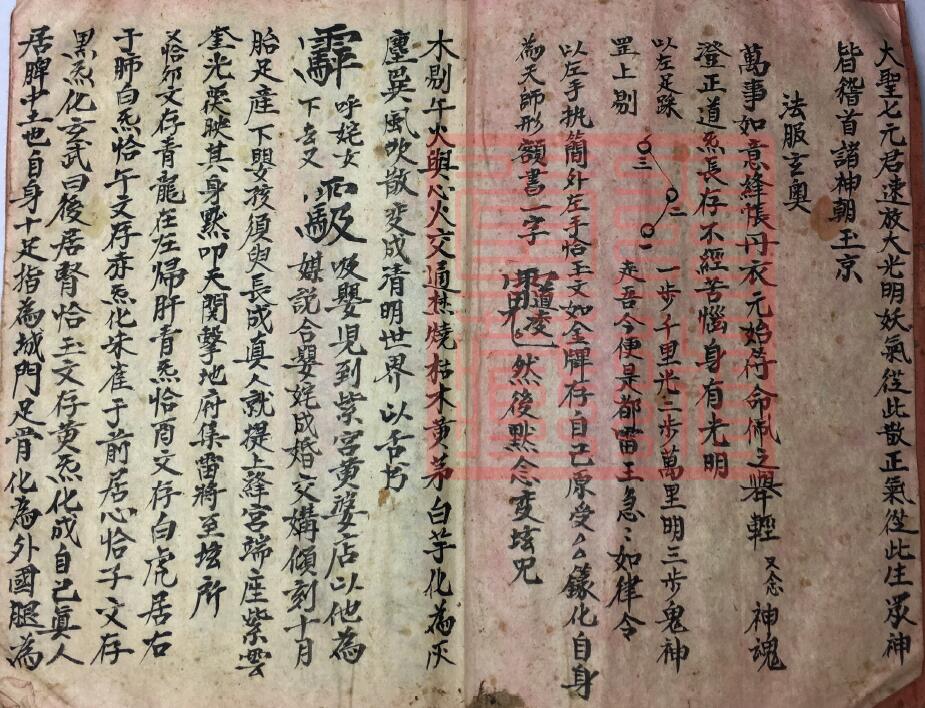 大聖七元君速放大光明妖氣從此散正氣從此生眾神
皆稽首諸神朝玉京
法服玄奧
萬事如意絳悵丹衣元始符命佩之舉輕 又念 神魂
澄正道炁長存不經苦惱身有光明
以左足跺 三 二 一 一步千里光二步萬里明三步鬼神
罡上剔 走吾今便是都雷王急〻如律令
以左手執簡外左手恰玉文如金牌存自己原受公籙化自身
為天師形額書一字 道凌 然後默念變坛咒
木剔午火與心火交通焚燒枯木黃茅白芋化為灰
塵巽風吹散变成清明世界 以舌书
呼姹女 吸嬰児到紫宮黄婆店以他為
下去又 媒說合嬰姹成婚交媾傾刻十月
胎足産下嬰孩須臾長成真人就提上絳宮端座紫雲
奎光 映其身黙叩天関擊地府集雷將至坛所
又恰卯文存青龍在左歸肝青炁恰酉文存白虎居右
于肺白炁恰午文存赤炁化朱雀于前居心恰子文存
黑炁化玄武曰後居腎恰玉文存黄炁化成自己真人
居脾中土也自身十足指為城門足骨化為外國腿為